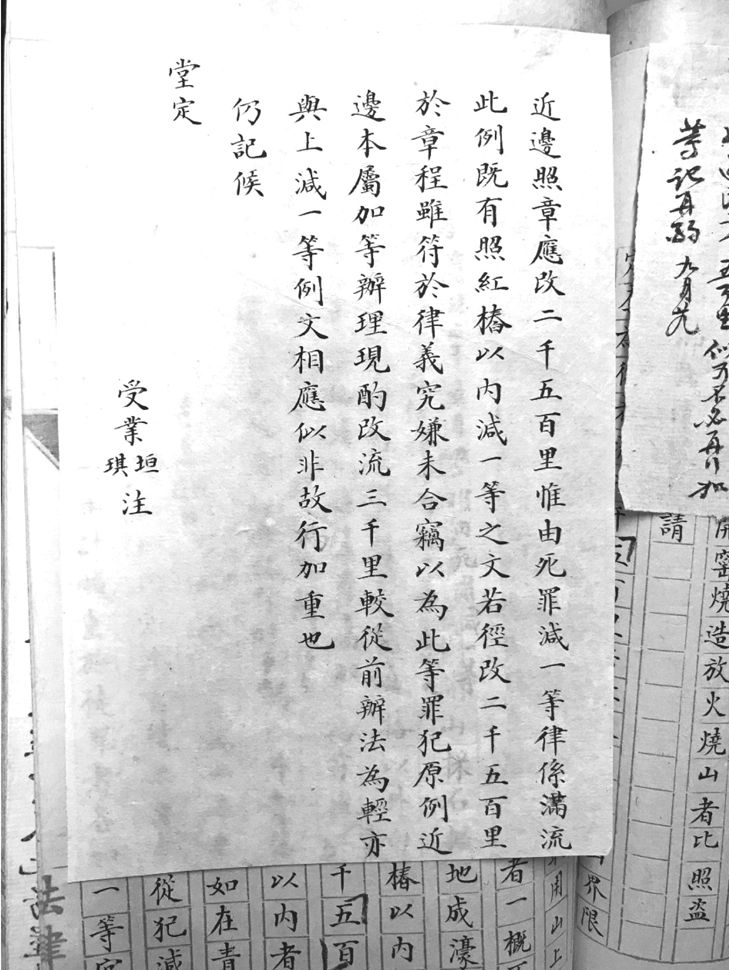 近邊照章應改二千五百里惟由死罪減一等律係滿流
此例既有照紅樁以內減一等之文若徑改二千五百里
於章程雖符於律義究嫌未合竊以為此等罪犯原例近
邊本屬加等辦理現酌改流三千里較從前辦法為輕亦
與上減一等例文相應似非故行加重也
仍記候
堂定
受業垣琪注
似可不必再行加
等記再酌 九月
請
開窰燒造放火燒山者比照盜
界限
用山上
者一概
地成濠
樁以內
千五百
以內者
如在青
從犯減
一等定
法律